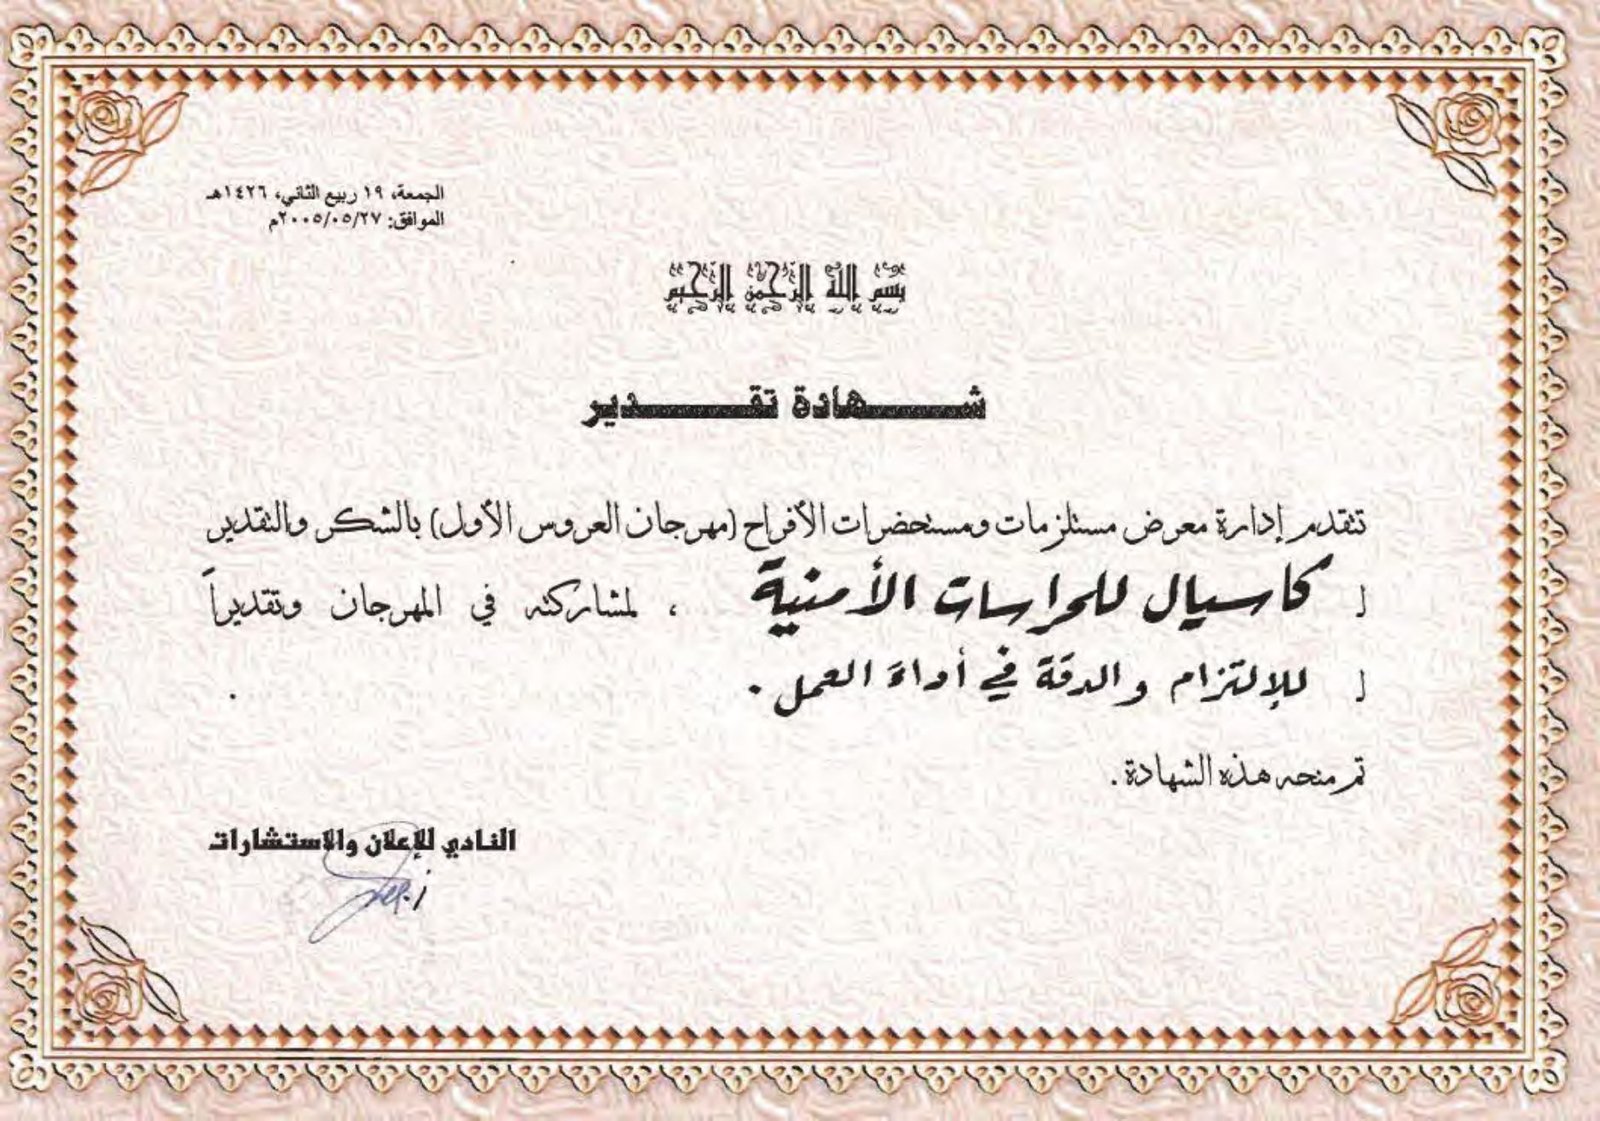 الجمعة، ١٩ ربيع الثاني، ١٤٢٦هـ
الموافق: ٢٠٠٥/٠٥/٢٧م
بسم الله الرحمن الرحيم
شهادة تقدير
تتقدم إدارة معرض مستلزمات ومستحضرات الأفراح (مهرجان العروس الأول) بالشكر والتقدير
لـ كاسيال للحراسات الأمنية ، لمشاركته في المهرجان وتقديراً
لـ للإلتزام والدقة في أداء العمل . .
تم منحه هذه الشهادة .
النادي للإعلان والاستشارات